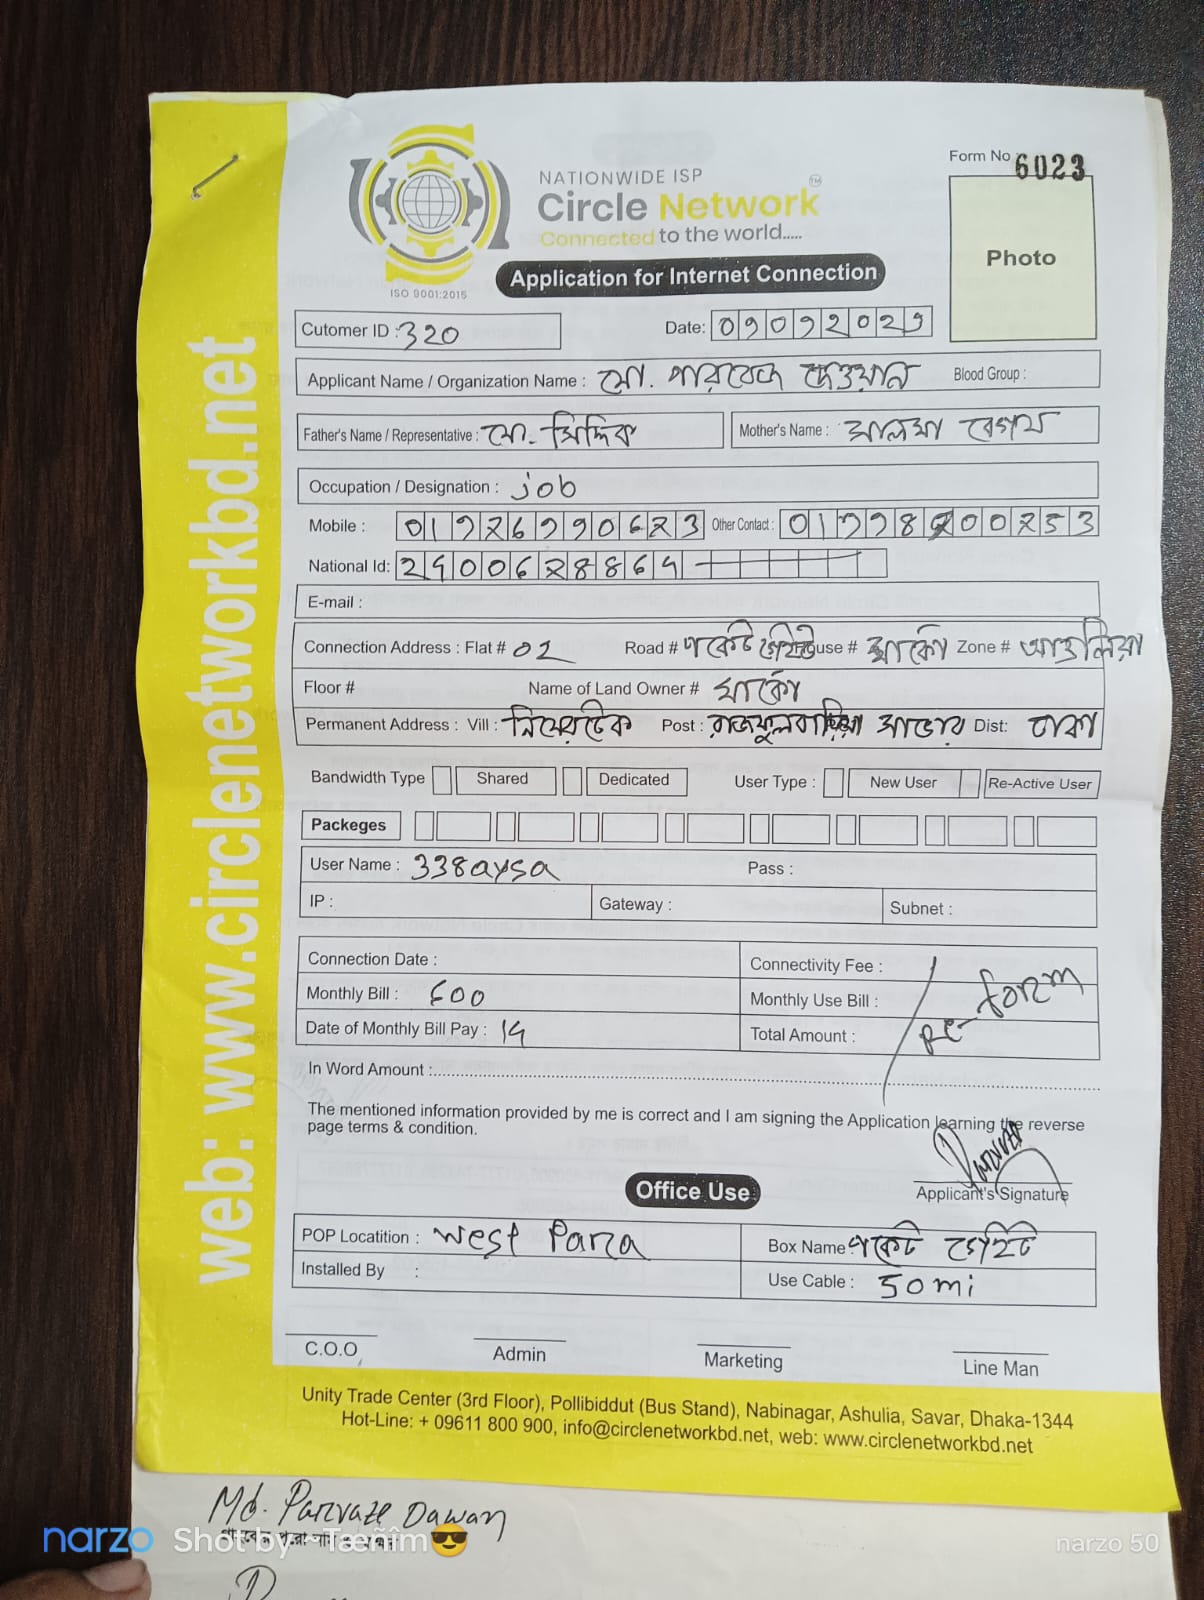 Form No 6023
NATIONWIDE ISP
Circle Network TM
Connected to the world.....
ISO 9001:2015
Application for Internet Connection
Photo
Cutomer ID : 320
Date: 09092029
Applicant Name / Organization Name : মো. পারভেজ দেওয়ান Blood Group :
Father's Name / Representative : মো. সিদ্দিক Mother's Name : সালমা বেগম
Occupation / Designation : job
Mobile : 01926990623 Other Contact : 01998200253
National Id: 2900628869
E-mail :
Connection Address : Flat # 02 Road # পকেট গেইট House # মার্কো Zone # আশুলিয়া
Floor # Name of Land Owner # মার্কো
Permanent Address : Vill : নিমেরটেক Post : রাজফুলবাড়িয়া সাভার Dist: ঢাকা
Bandwidth Type Shared Dedicated User Type : New User Re-Active User
Packeges
User Name : 338aysa Pass :
IP : Gateway : Subnet :
Connection Date : Connectivity Fee :
Monthly Bill : 600 Monthly Use Bill :
Date of Monthly Bill Pay : 19 Total Amount :
Re-form
In Word Amount :
The mentioned information provided by me is correct and I am signing the Application learning the reverse
page terms & condition.
Applicant's Signature
Office Use
POP Locatition : West Para Box Name পকেট গেইট
Installed By : Use Cable : 50 mi
C.O.O Admin Marketing Line Man
Unity Trade Center (3rd Floor), Pollibiddut (Bus Stand), Nabinagar, Ashulia, Savar, Dhaka-1344
Hot-Line: + 09611 800 900, info@circlenetworkbd.net, web: www.circlenetworkbd.net
web: www.circlenetworkbd.net
Md. Parvaze Dawan
narzo Shot by - Tæñîm😎 narzo 50